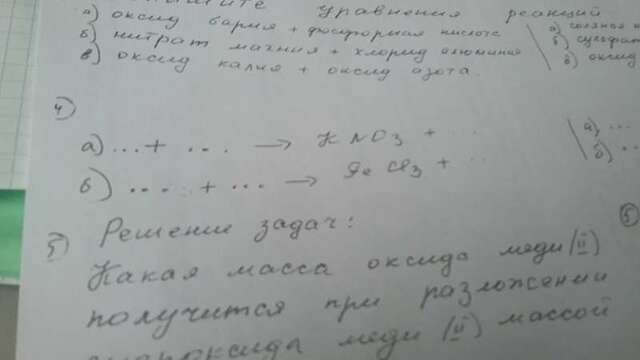 уравнения реакций
а) оксид бария + фосфорная кислота
б) нитрат магния + хлорид алюминия
в) оксид калия + оксид азота.
а)
б) сульфат
в) оксид
4)
а) ...+ ... → KNO3 + ...
б) .... + ... → FeCl3 + ..
а) ...
б) ..
5) Решение задач:
Какая масса оксида меди (II)
получится при разложении
меди (II) массой
5